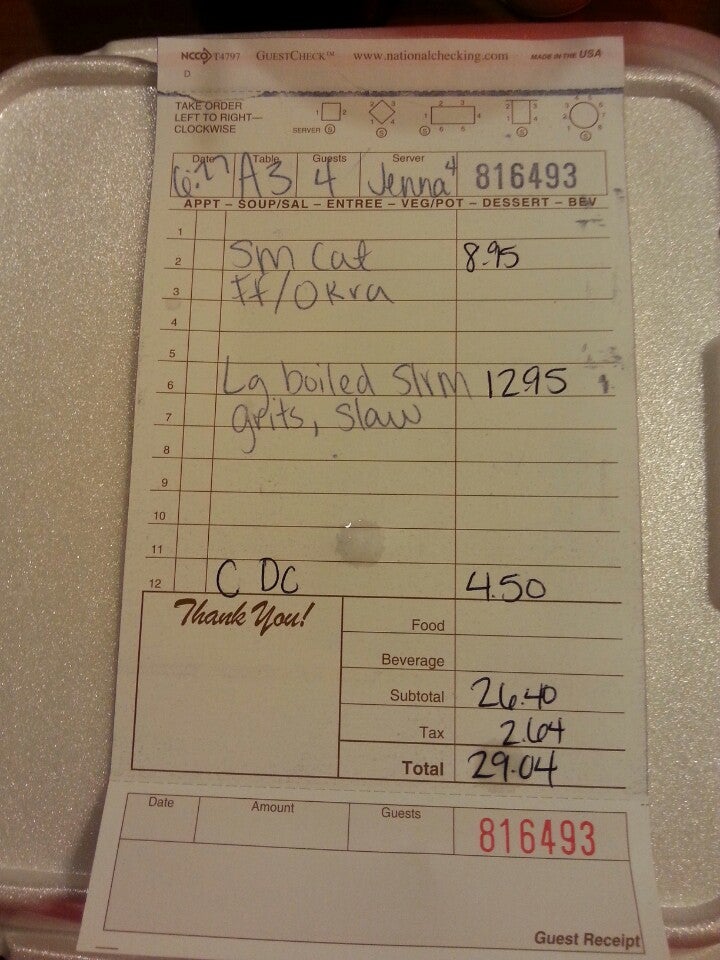 NCCO T4797 GUESTCHECK™ www.nationalchecking.com MADE IN THE USA
D
TAKE ORDER
LEFT TO RIGHT—
CLOCKWISE
SERVER
Date Table Guests Server
A3 4 Jenna 4 816493
APPT – SOUP/SAL – ENTREE – VEG/POT – DESSERT – BEV
1
2 Sm Cat 8.95
3 FF/Okra
4
5
6 Lg boiled Shrm 12.95
7 grits, Slaw
8
9
10
11
12 C DC 4.50
Thank You!
Food
Beverage
Subtotal 26.40
Tax 2.64
Total 29.04
Date Amount Guests
816493
Guest Receipt